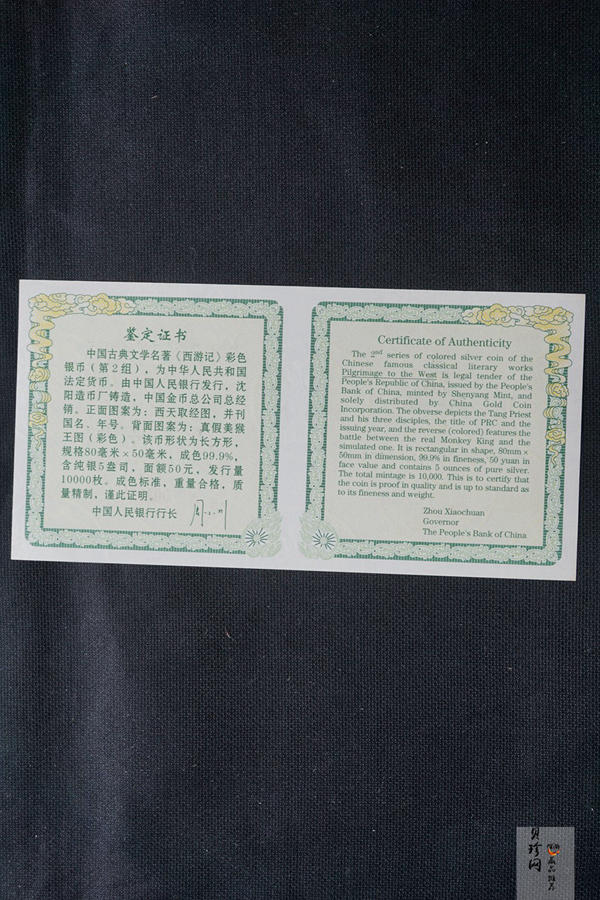 鉴定证书
中国古典文学名著《西游记》彩色
银币(第2组),为中华人民共和国
法定货币。由中国人民银行发行,沈
阳造币厂铸造,中国金币总公司总经
销。正面图案为:西天取经图,并刊
国名、年号。背面图案为:真假美猴
王图(彩色)。该币形状为长方形,
规格80毫米×50毫米,成色99.9%,
含纯银5盎司,面额50元,发行量
10000枚。成色标准,重量合格,质
量精制,谨此证明。
中国人民银行行长
Certificate of Authenticity
The 2nd series of colored silver coin of the
Chinese famous classical literary works
Pilgrimage to the West is legal tender of the
People's Republic of China, issued by the People's
Bank of China, minted by Shenyang Mint, and
solely distributed by China Gold Coin
Incorporation. The obverse depicts the Tang Priest
and his three disciples, the title of PRC and the
issuing year, and the reverse (colored) features the
battle between the real Monkey King and the
simulated one. It is rectangular in shape, 80mm×
50mm in dimension, 99.9% in fineness, 50 yuan in
face value and contains 5 ounces of pure silver.
The total mintage is 10,000. This is to certify that
the coin is proof in quality and is up to standard as
to its fineness and weight.
Zhou Xiaochuan
Governor
The People's Bank of China
贝珍网